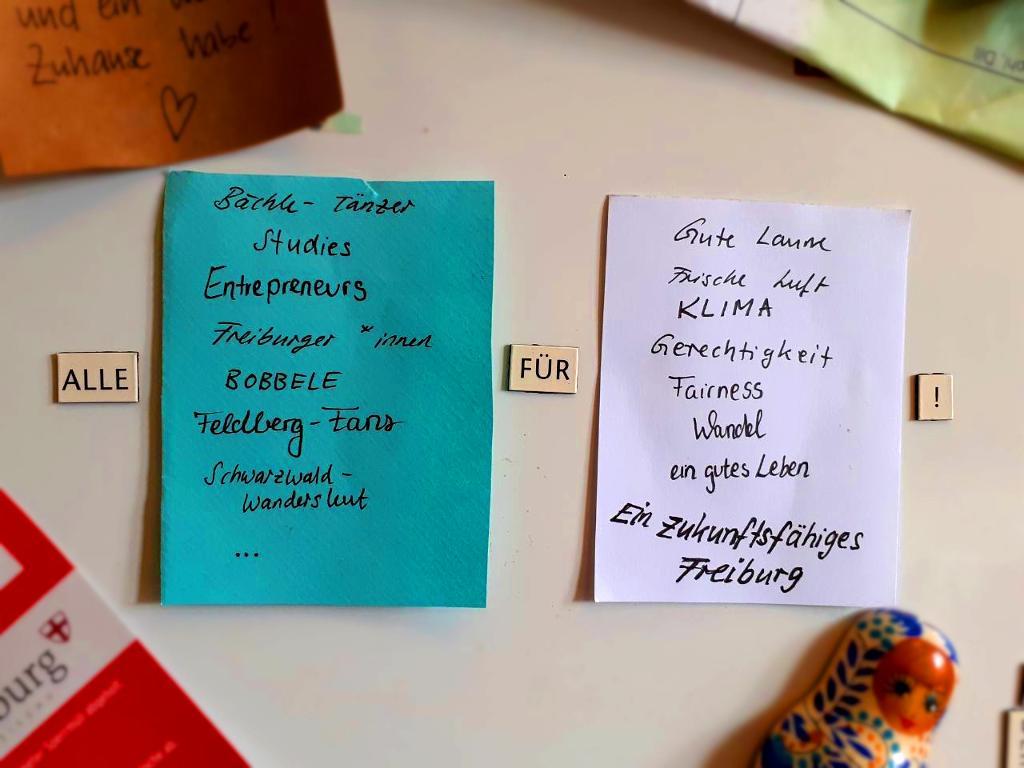 und ein
Zuhause habe !
ALLE
Bächle- Tänzer
Studies
Entrepreneurs
Freiburger *innen
BOBBELE
Feldberg-Fans
Schwarzwald-
Wandersleut
...
FÜR
Gute Laune
Frische Luft
KLIMA
Gerechtigkeit
Fairness
Wandel
ein gutes Leben
Ein zukunftsfähiges
Freiburg
!
burg